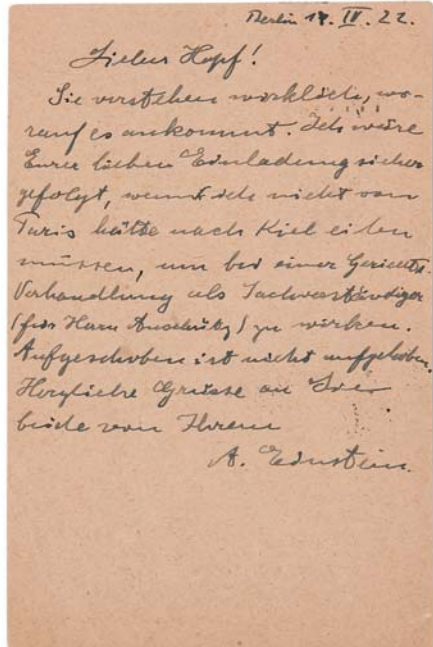 Berlin 17. IV. 22.
Lieber Hopf!
Sie verstehen wirklich, wo-
rauf es ankommt. Ich wäre
Eurer lieben Einladung sicher
gefolgt, wenn ich nicht von
Paris hätte nach Kiel eilen
müssen, um bei einer Gerichts-
Verhandlung als Sachverständiger
(für Herrn Anschütz) zu wirken.
Aufgeschoben ist nicht aufgehoben.
Herzliche Grüsse an Sie
beide von Ihrem
A. Einstein.